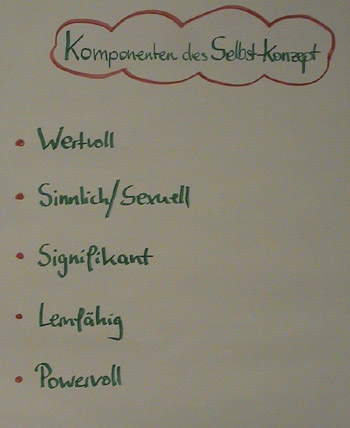 Komponenten des Selbst-Konzept
• Wertvoll
• Sinnlich/Sexuell
• Signifikant
• Lernfähig
• Powervoll